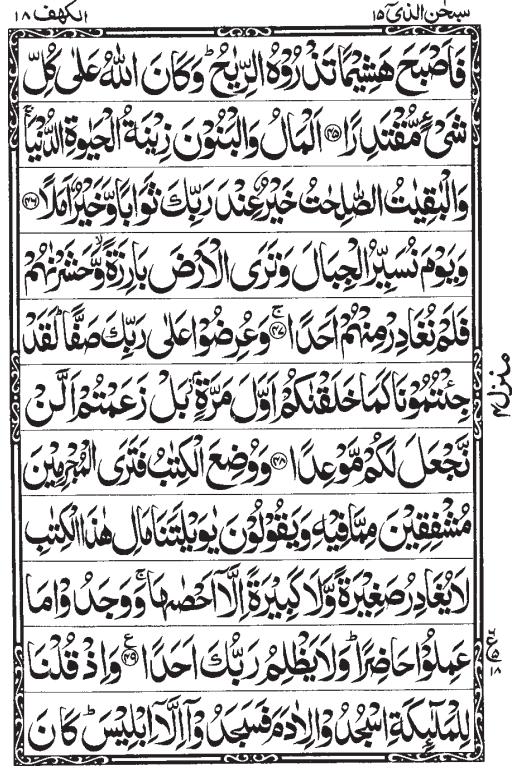 سبحٰن الذیٓ ١٥
الكهف ١٨
فَاَصْبَحَ هَشِیْمًا تَذْرُوْهُ الرِّیٰحُ ؕ وَكَانَ اللّٰهُ عَلٰى كُلِّ
شَیْءٍ مُّقْتَدِرًا ﴿۴۵﴾ اَلْمَالُ وَالْبَنُوْنَ زِیْنَةُ الْحَیٰوةِ الدُّنْیَا ۚ
وَالْبٰقِیٰتُ الصّٰلِحٰتُ خَیْرٌ عِنْدَ رَبِّكَ ثَوَابًا وَّخَیْرٌ اَمَلًا ﴿۴۶﴾
وَیَوْمَ نُسَیِّرُ الْجِبَالَ وَتَرَى الْاَرْضَ بَارِزَةً ۙ وَّحَشَرْنٰهُمْ
فَلَمْ نُغَادِرْ مِنْهُمْ اَحَدًا ﴿۴۷﴾ ۚ وَعُرِضُوْا عَلٰى رَبِّكَ صَفًّا ؕ لَقَدْ
جِئْتُمُوْنَا كَمَا خَلَقْنٰكُمْ اَوَّلَ مَرَّةٍۭ ؗ بَلْ زَعَمْتُمْ اَلَّنْ
نَّجْعَلَ لَكُمْ مَّوْعِدًا ﴿۴۸﴾ وَوُضِعَ الْكِتٰبُ فَتَرَى الْمُجْرِمِیْنَ
مُشْفِقِیْنَ مِمَّا فِیْهِ وَیَقُوْلُوْنَ یٰوَیْلَتَنَا مَالِ هٰذَا الْكِتٰبِ
لَا یُغَادِرُ صَغِیْرَةً وَّلَا كَبِیْرَةً اِلَّاۤ اَحْصٰىهَا ۚ وَوَجَدُوْا مَا
عَمِلُوْا حَاضِرًا ؕ وَلَا یَظْلِمُ رَبُّكَ اَحَدًا ﴿۴۹﴾ ع وَاِذْ قُلْنَا
لِلْمَلٰٓىِٕكَةِ اسْجُدُوْا لِاٰدَمَ فَسَجَدُوْۤا اِلَّاۤ اِبْلِیْسَ ؕ كَانَ
منزل ۴
ع
۵
١٨